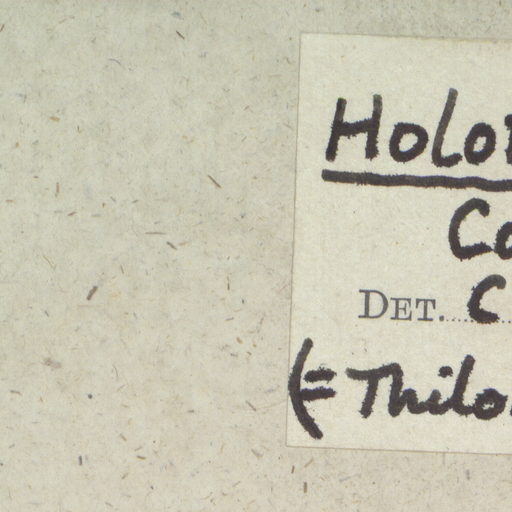 Holot
Co
DET. C
(= Thilo